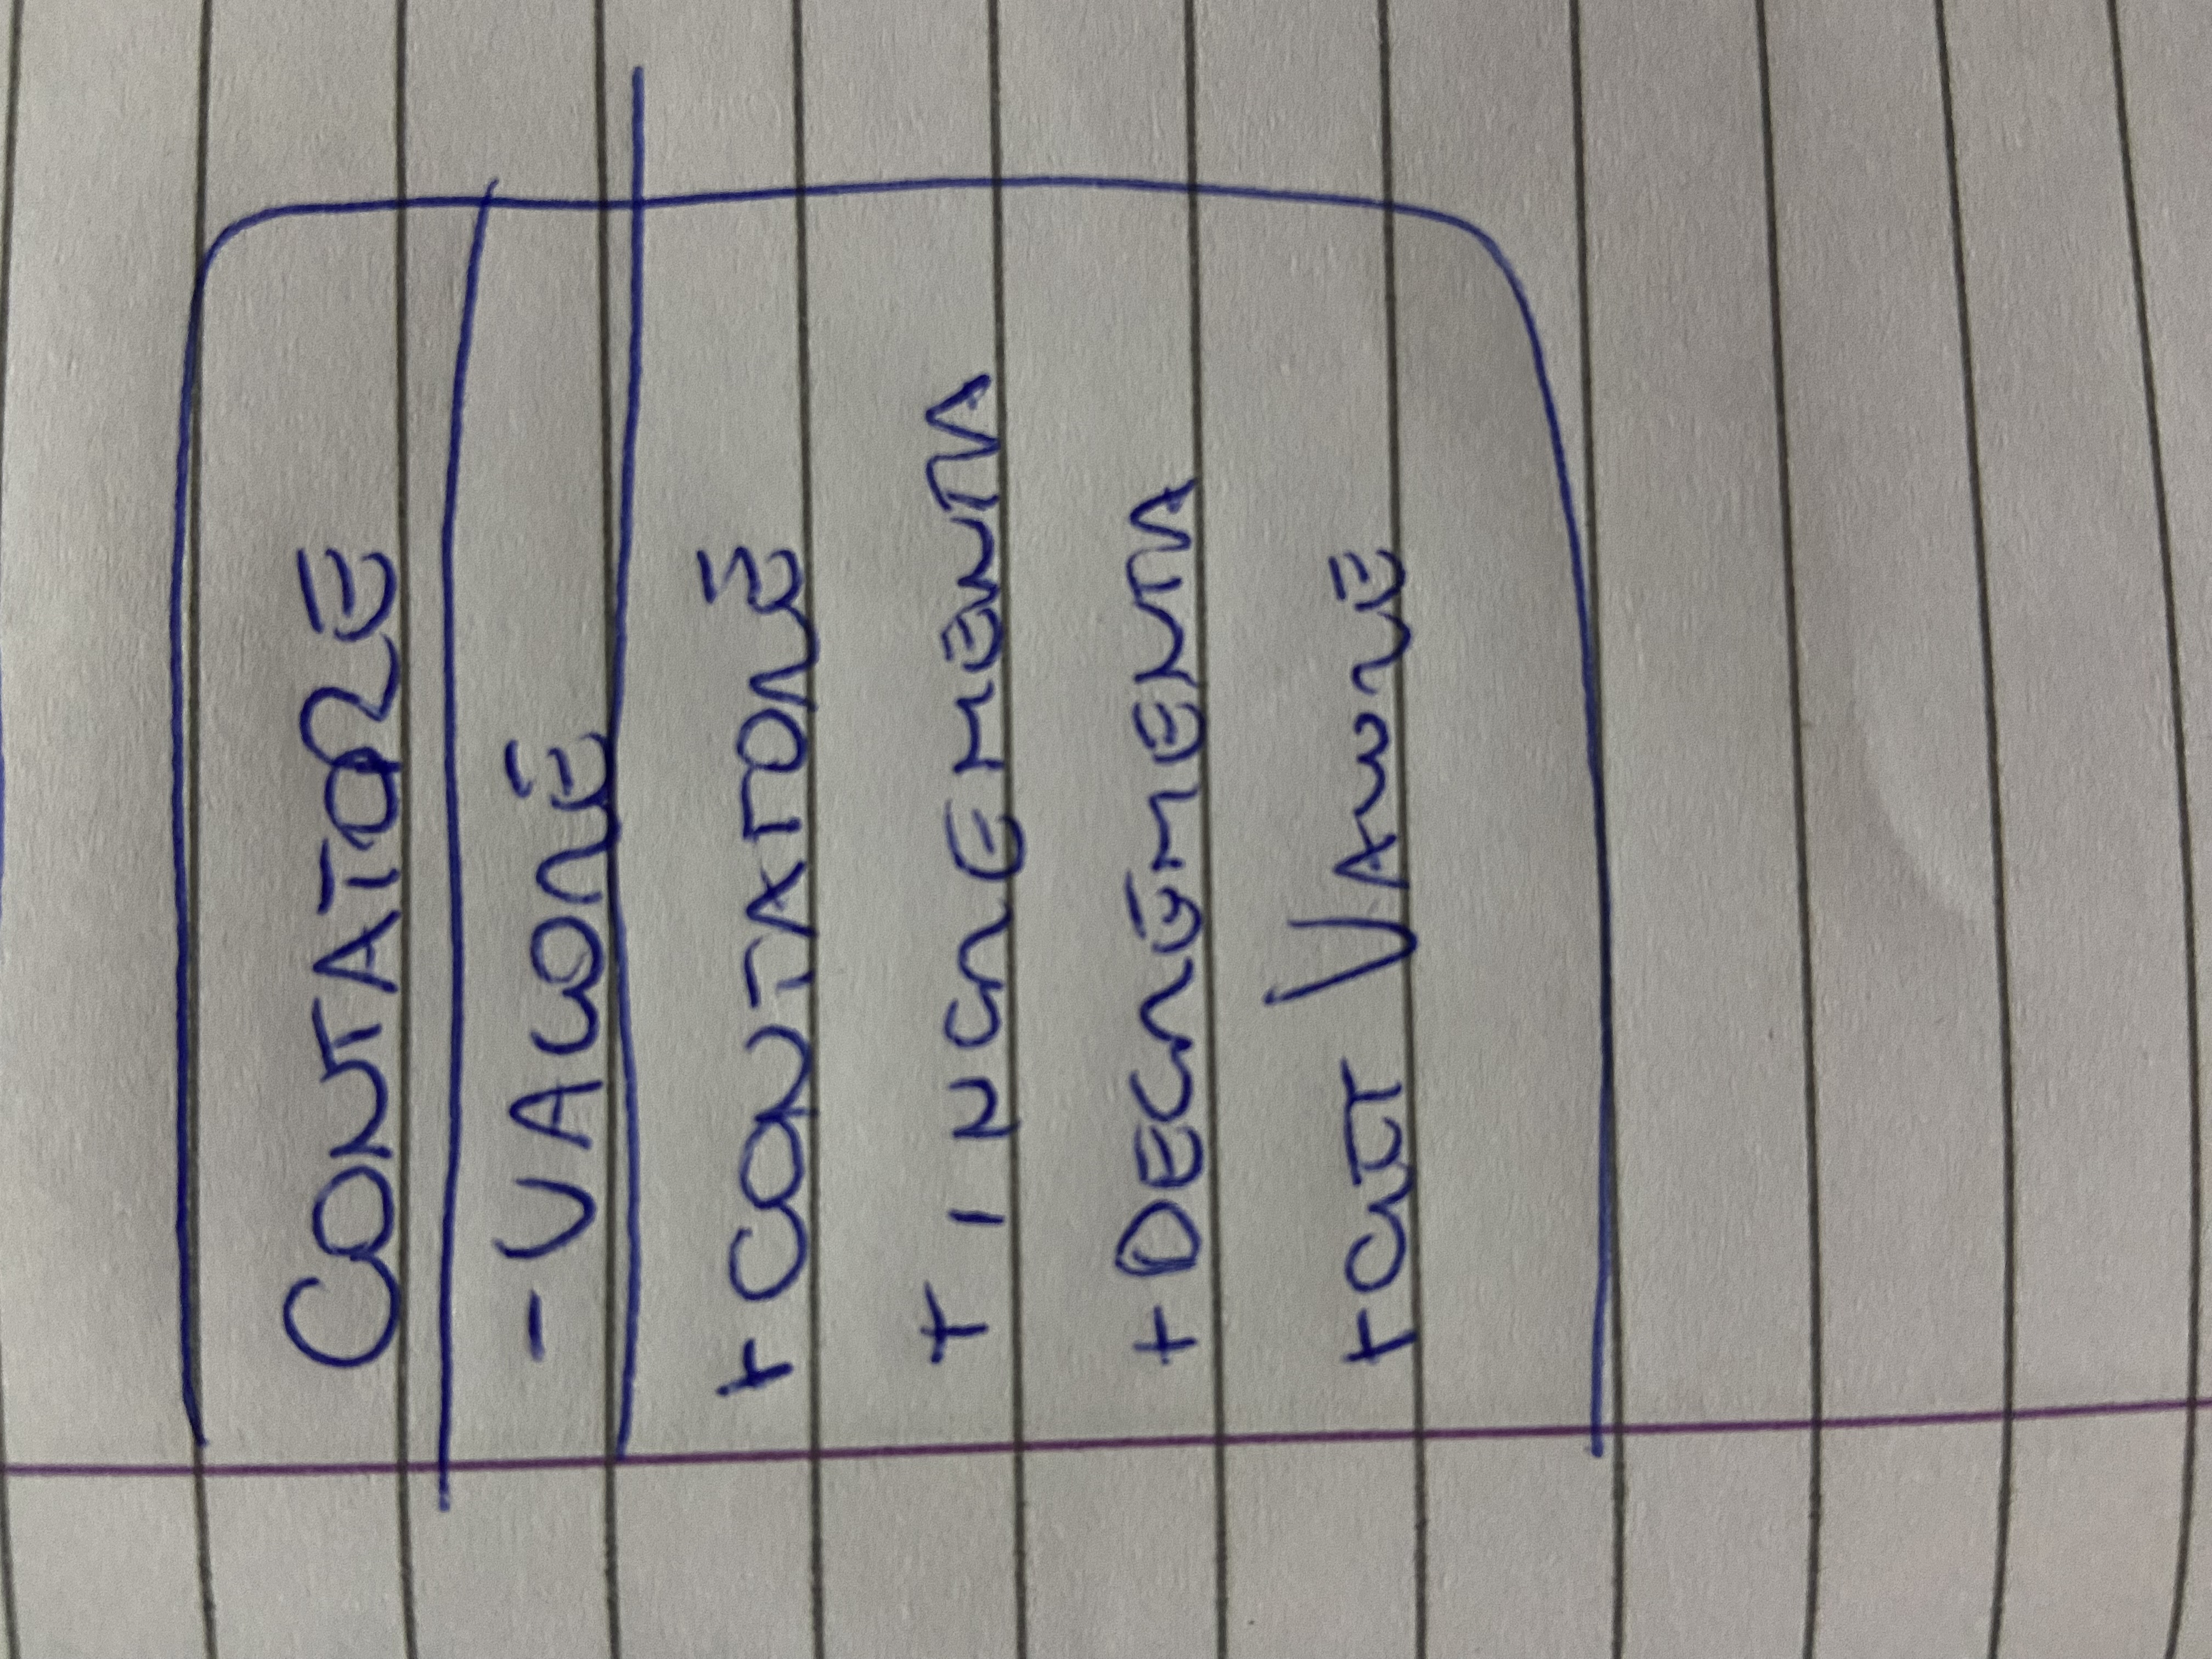 CONTATORE
- VALORE
+ CONTATORE
+ INCREMENTA
+ DECREMENTA
+ GET VALORE